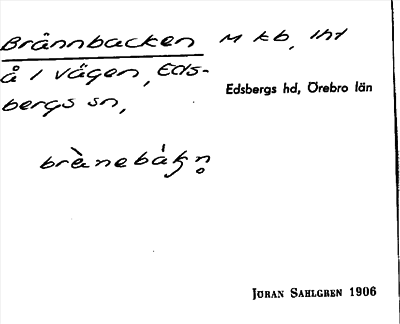 Brännbacken M kb, Iht
å / vägen, Eds-
bergs sn,
Edsbergs hd, Örebro län
brä̀nebák̨n̥
JÖRAN SAHLGREN 1906